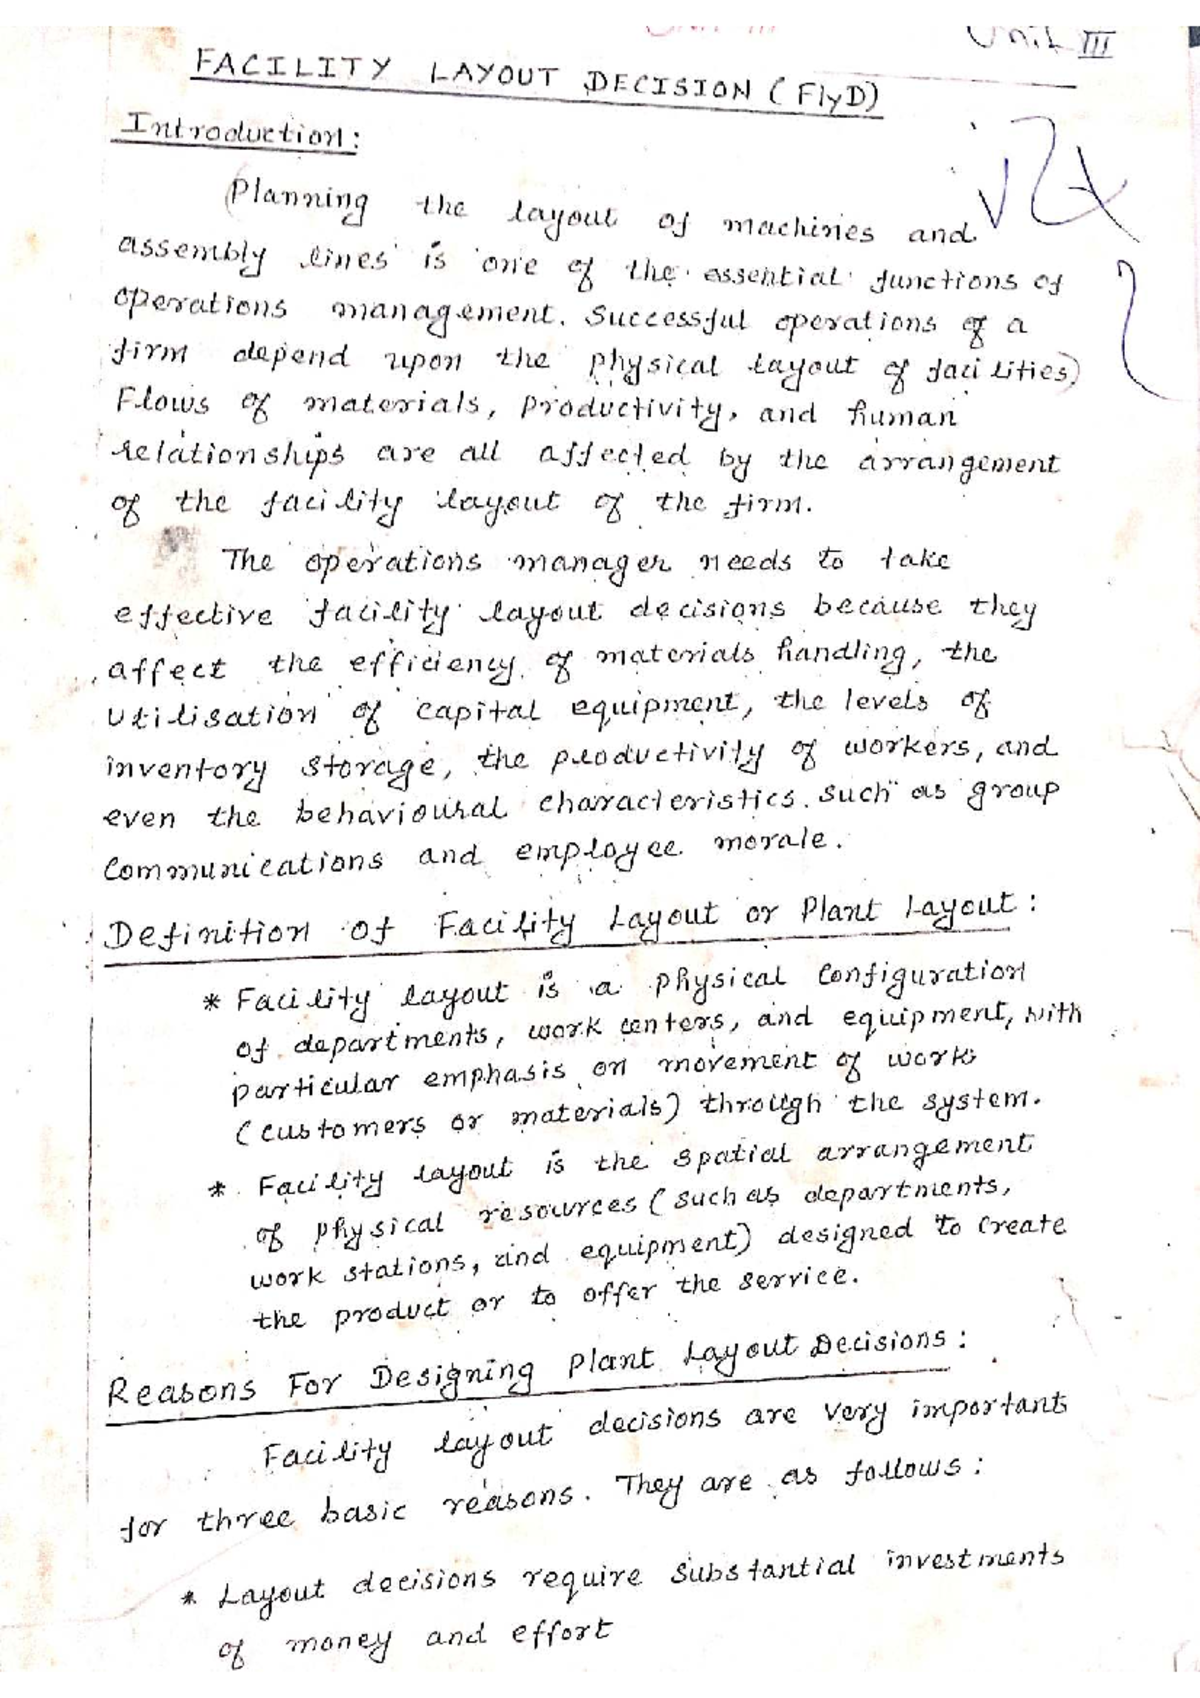 Unit III
FACILITY LAYOUT DECISION (FlyD)
Introduction:
Planning the layout of machines and
assembly lines is one of the essential functions of
operations management. Successful operations of a
firm depend upon the physical layout of facilities)
Flows of materials, productivity, and human
relationships are all affected by the arrangement
of the facility layout of the firm.
The operations manager needs to take
effective facility layout decisions because they
affect the efficiency of materials handling, the
utilisation of capital equipment, the levels of
inventory storage, the productivity of workers, and
even the behavioural characteristics. Such as group
Communications and employee morale.
Definition of Facility Layout or Plant Layout:
* Facility layout is a physical configuration
of departments, work centers, and equipment, with
particular emphasis on movement of work
(customers or materials) through the system.
* Facility layout is the spatial arrangement
of physical resources (such as departments,
work stations, and equipment) designed to create
the product or to offer the service.
Reasons For Designing Plant Layout Decisions:
Facility layout decisions are very important
for three basic reasons. They are as follows:
* Layout decisions require substantial investments
of money and effort